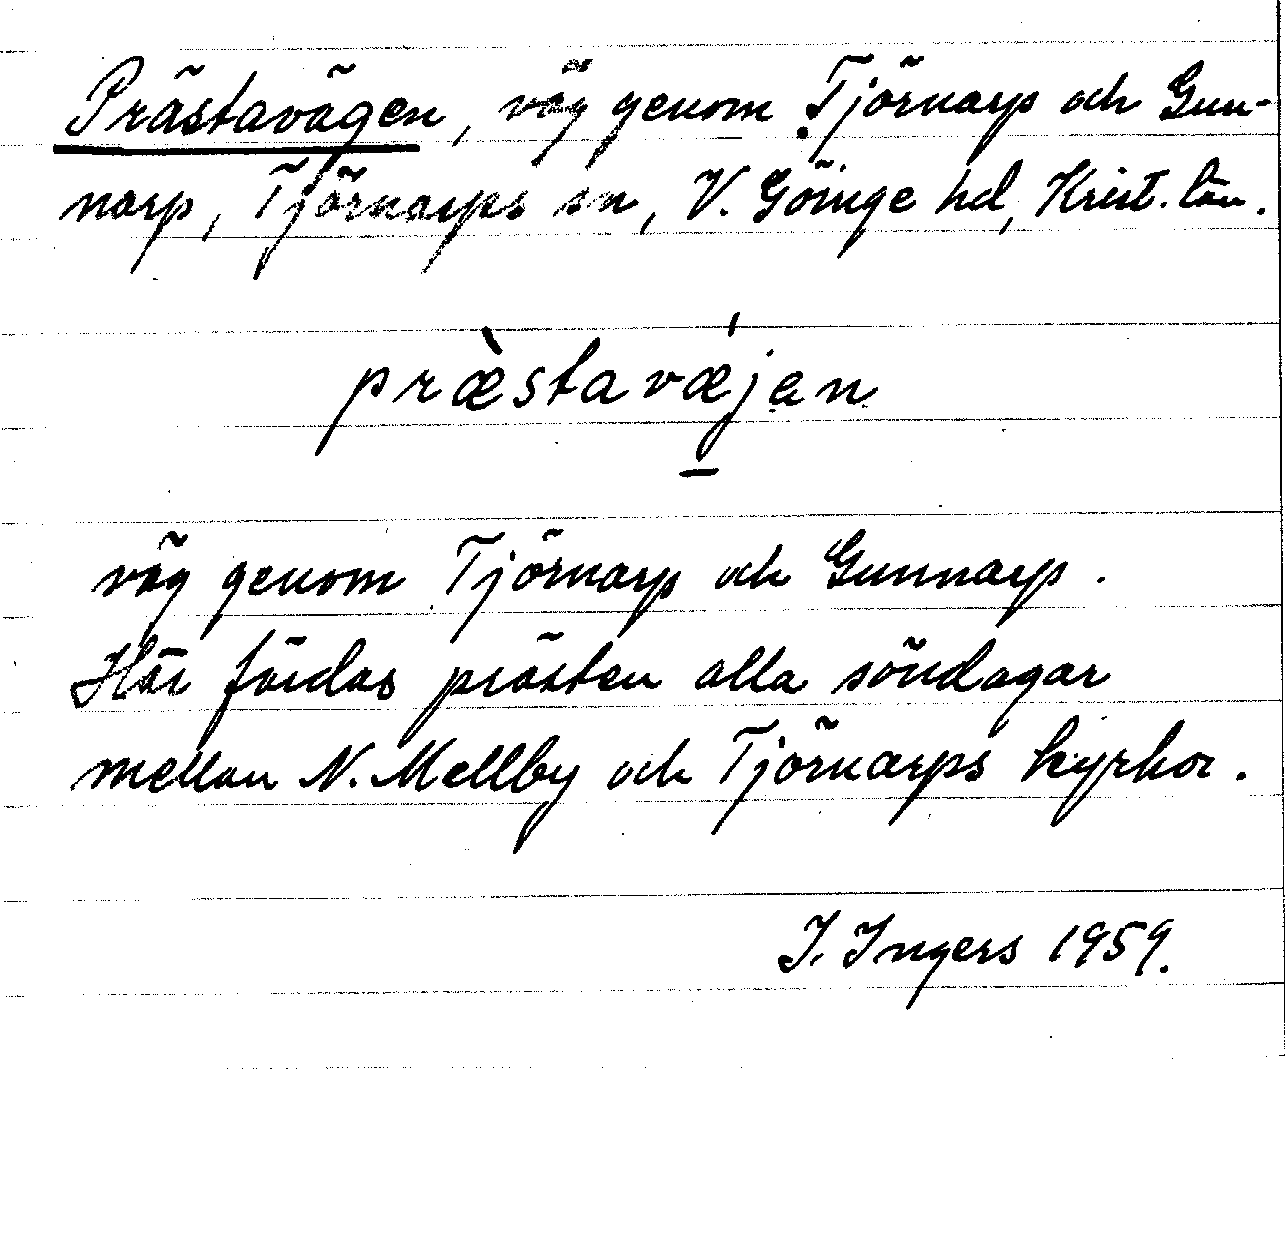 Prästavägen, väg genom Tjörnarp och Gun-
narp, Tjörnarps sn, V. Göinge hd, Krist. län.
præ̀stavǽjen
väg genom Tjörnarp och Gunnarp.
Här färdas prästen alla söndagar
mellan N. Mellby och Tjörnarps kyrkor.
I. Ingers 1959.